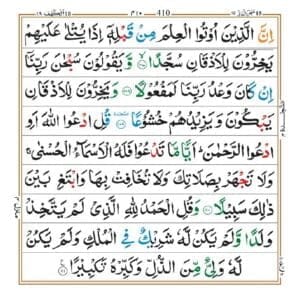 410
اِنَّ الَّذِيْنَ اُوْتُوا الْعِلْمَ مِنْ قَبْلِهٖٓ اِذَا يُتْلٰى عَلَيْهِمْ
يَخِرُّوْنَ لِلْاَذْقَانِ سُجَّدًا ۙ وَّيَقُوْلُوْنَ سُبْحٰنَ رَبِّنَآ
اِنْ كَانَ وَعْدُ رَبِّنَا لَمَفْعُوْلًا وَيَخِرُّوْنَ لِلْاَذْقَانِ
يَبْكُوْنَ وَيَزِيْدُهُمْ خُشُوْعًا قُلِ ادْعُوا اللّٰهَ اَوِ
ادْعُوا الرَّحْمٰنَ ؕ اَيًّا مَّا تَدْعُوْا فَلَهُ الْاَسْمَآءُ الْحُسْنٰى ۚ
وَلَا تَجْهَرْ بِصَلَاتِكَ وَلَا تُخَافِتْ بِهَا وَابْتَغِ بَيْنَ
ذٰلِكَ سَبِيْلًا وَقُلِ الْحَمْدُ لِلّٰهِ الَّذِيْ لَمْ يَتَّخِذْ
وَلَدًا وَّلَمْ يَكُنْ لَّهٗ شَرِيْكٌ فِي الْمُلْكِ وَلَمْ يَكُنْ
لَّهٗ وَلِيٌّ مِّنَ الذُّلِّ وَكَبِّرْهُ تَكْبِيْرًا